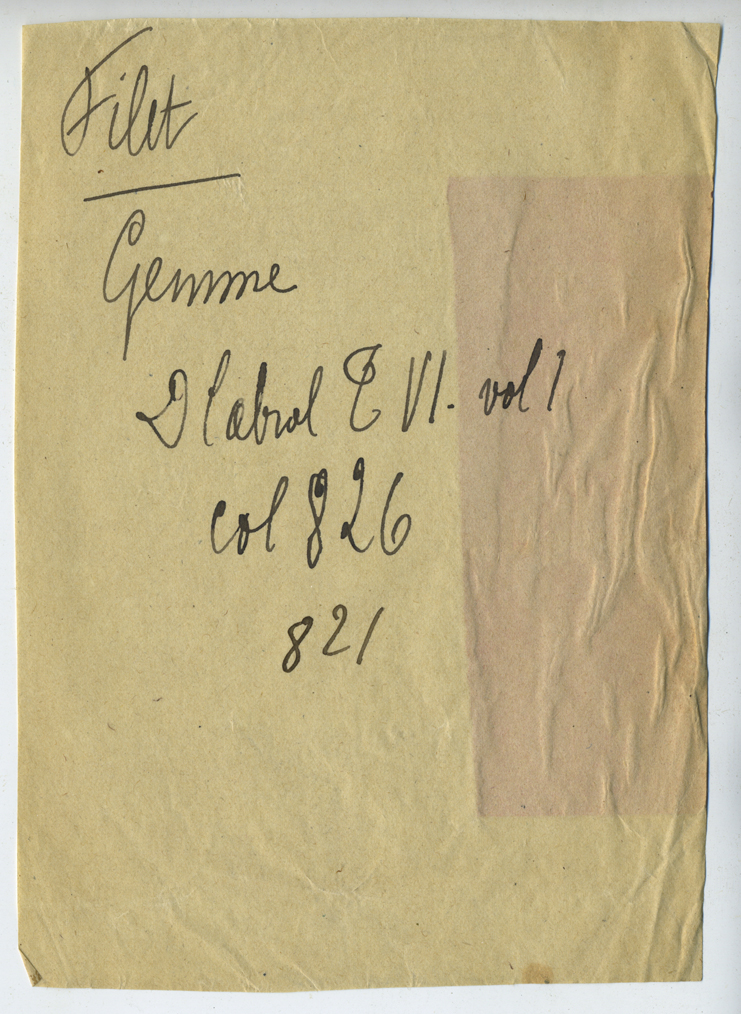 Filet
Gemme
D Cabrol T VI. vol 1
col 826
821